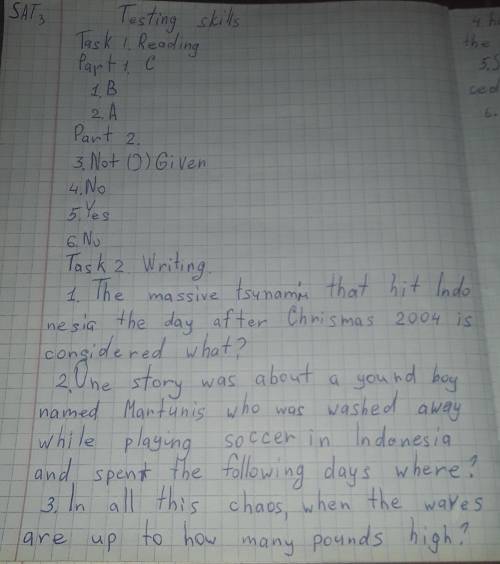 SAT3 Testing skills
Task 1. Reading
Part 1. C
1. B
2. A
Part 2.
3. Not Given
4. No
5. Yes
6. No
Task 2 Writing.
1. The massive tsunami that hit Indo
nesia the day after Chrismas 2004 is
considered what?
2. One story was about a yound boy
named Martunis who was washed away
while playing soccer in Indonesia
and spent the following days where?
3. In all this chaos, when the waves
are up to how many pounds high?
the
5. S
6.